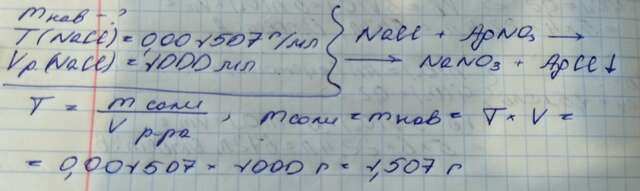 m нав - ?
T(NaCl) = 0,001507 г/мл
Vр.(NaCl) = 1000 мл
NaCl + AgNO₃ →
→ NaNO₃ + AgCl↓
T = m соли / V р-ра, m соли = m нав = T × V =
= 0,001507 × 1000 г = 1,507 г